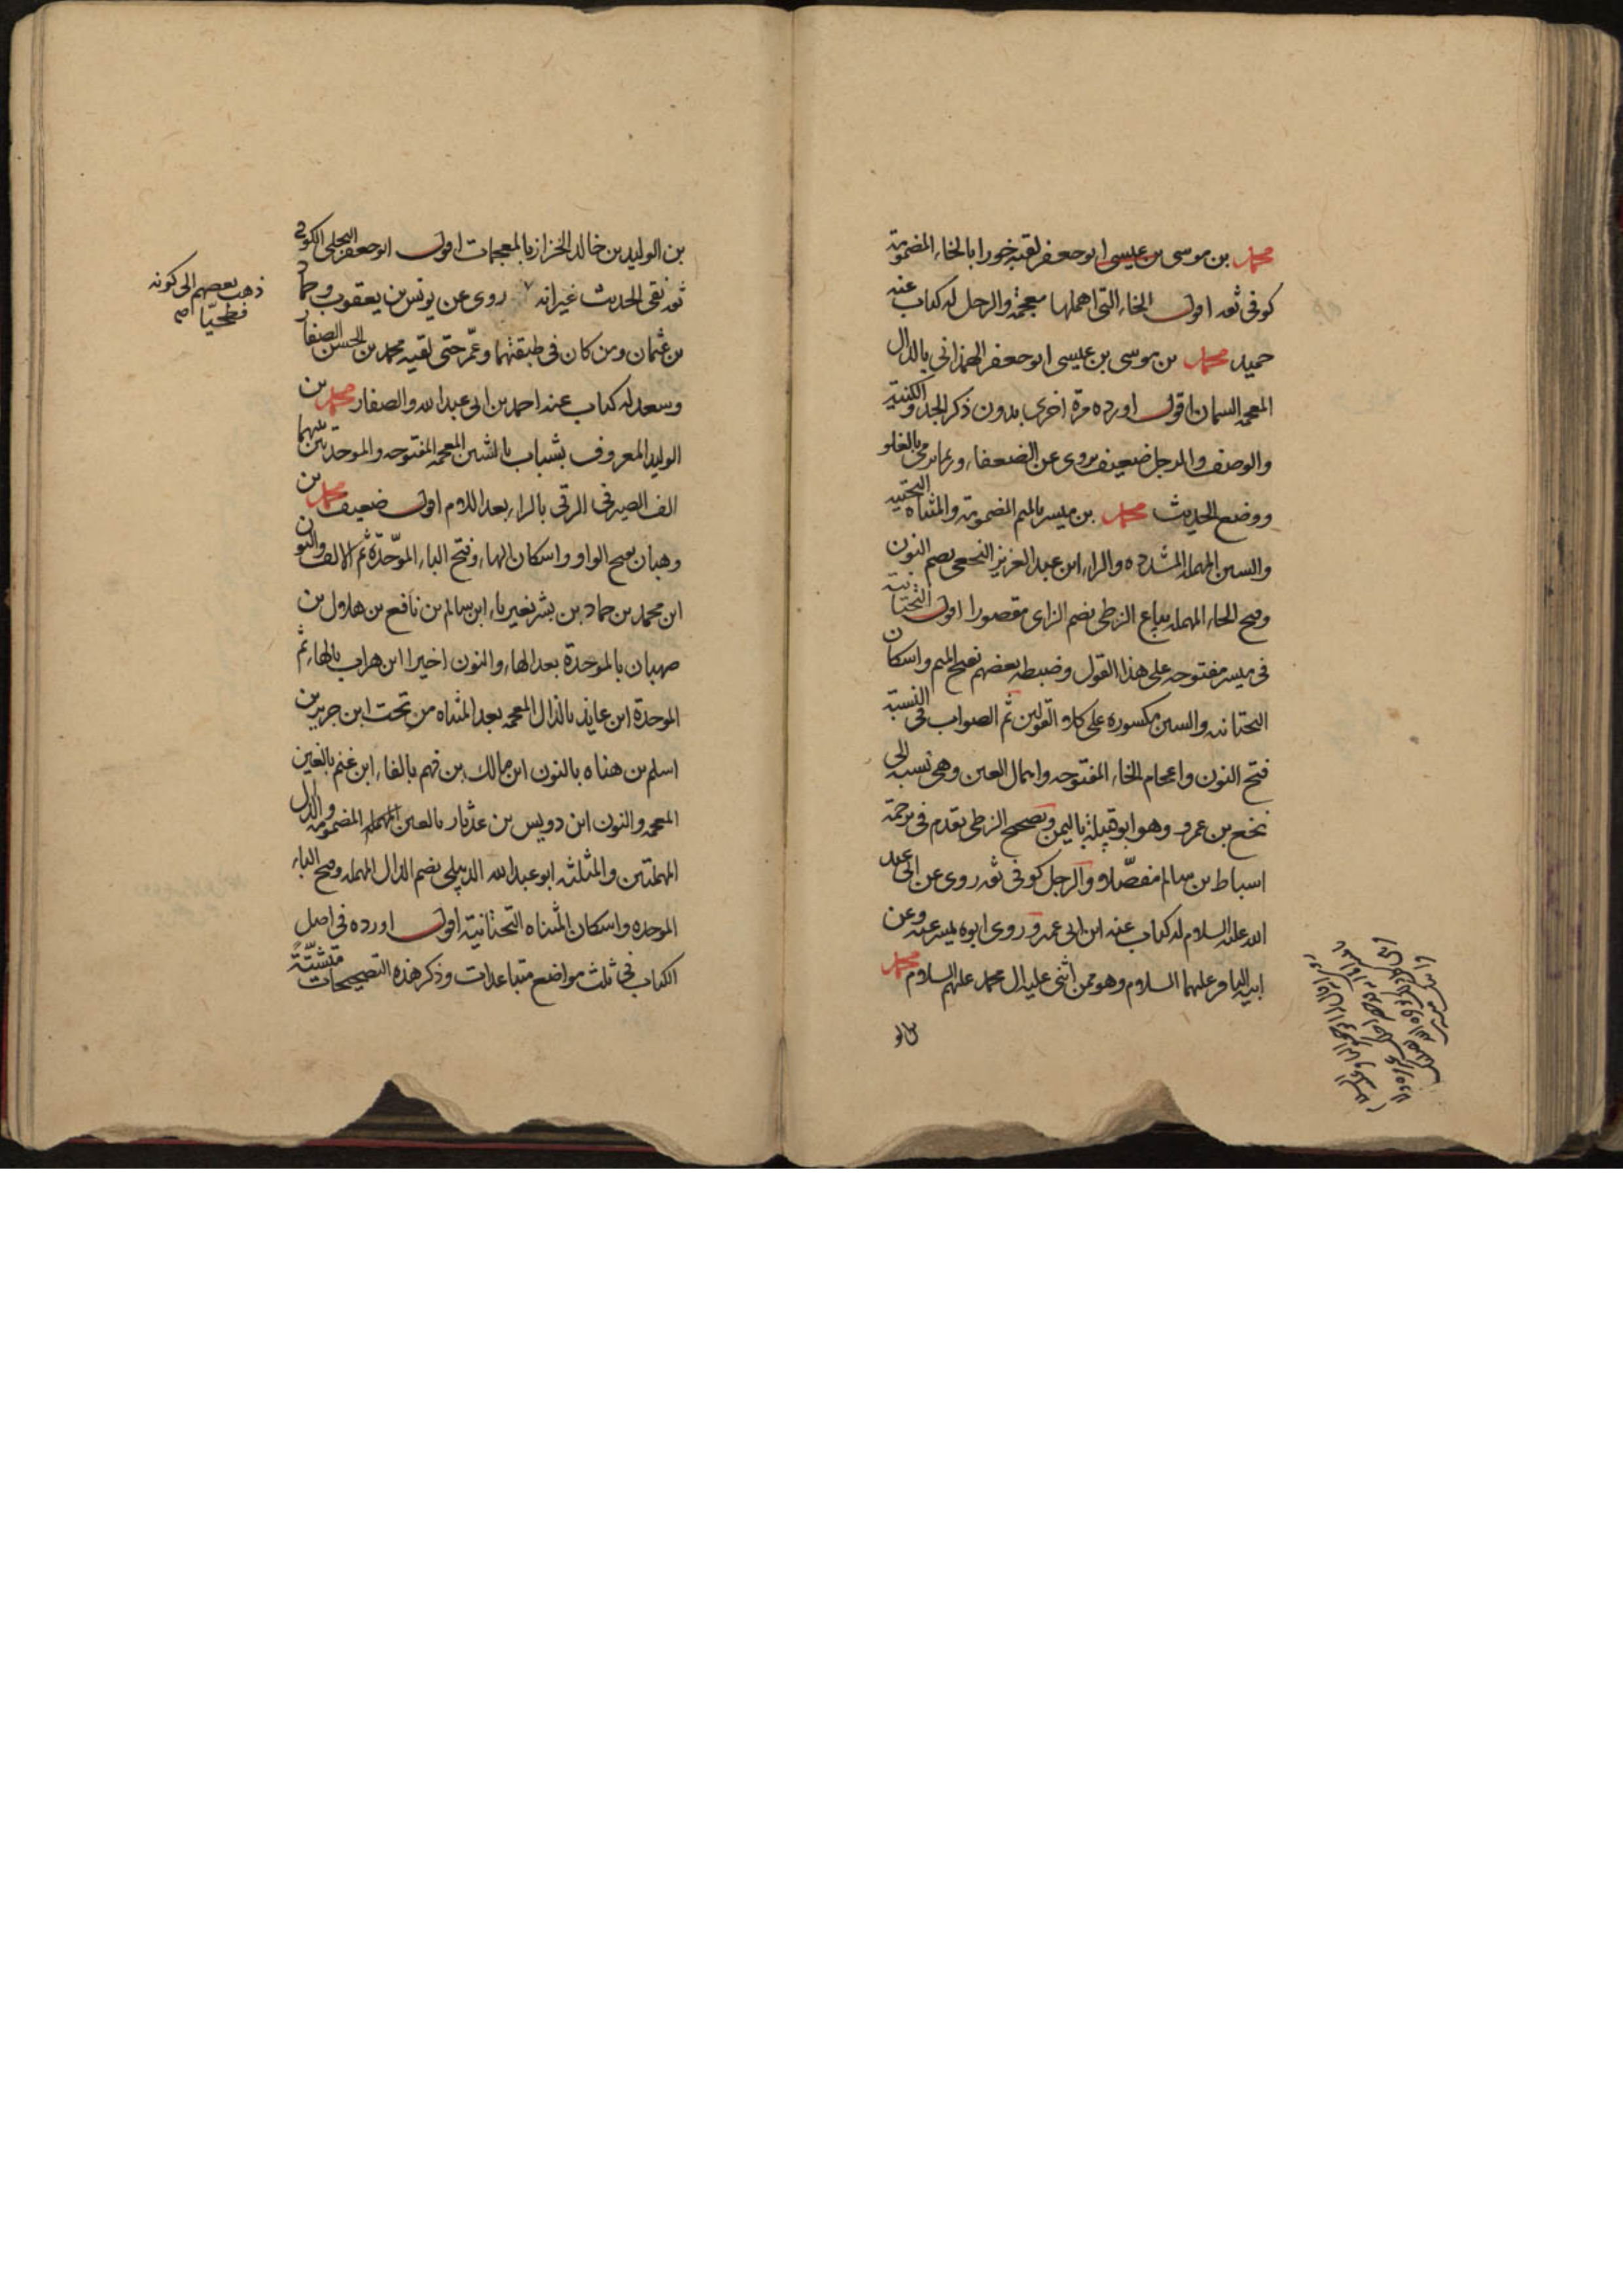 محمد بن موسى بن عيسى ابو جعفر لقبه خورا بالخاء المضمومة
كوفى ثقه اقول الخاء التى اهملها معجمة والرجل له كتاب عنه
حميد محمد بن موسى بن عيسى ابو جعفر الهمذانى بالذال
المعجمه السمان اقول اورده مرة اخرى بدون ذكر الجد والكنية
والوصف والرجل ضعيف يروى عن الضعفاء وربما رمى بالغلو
ووضع الحديث محمد بن ميسر بالميم المضمومة والمثناه التحتيه
والسين المهمله المشدده والراء ابن عبد العزيز النخعى بضم النون
وفتح الحاء المهمله بياع الزطى بضم الزاى مقصورا اقول التحتانية
فى ميسر مفتوحه على هذا القول وضبطه بعضهم بفتح الميم واسكان
التحتانيه والسين مكسوره على كلا القولين ثم الصواب فى النسبة
فتح النون واعجام الخاء المفتوحه واهمال العين وهى نسبه الى
نخع بن عمرو وهو ابو قبيلة باليمن وتصحيح الزطى تقدم فى ترجمة
اسباط بن سالم مفصلا والرجل كوفى ثقه روى عن ابى عبد
الله عليه السلام له كتاب عنه ابن ابى عمير وروى ابوه ميسر عنه وعن
ابيه الباقر عليهما السلام وهو ممن اثنى عليه ال محمد عليهم السلام محمد
بن الوليد بن خالد الخزاز بالمعجمات اقول ابو جعفر البجلى الكوفى
ثقه نقى الحديث غير انه روى عن يونس بن يعقوب وحماد
بن عثمان ومن كان فى طبقتهما وعمّر حتى لقيه محمد بن الحسن الصفار
وسعد له كتاب عنه احمد بن ابى عبد الله والصفار محمد بن
الوليد المعروف بشباب بالشين المعجمه المفتوحه والموحدتين بينهما
الف الصيرفى الرقى بالراء بعد اللام اقول ضعيف محمد بن
وهبان بفتح الواو واسكان الهاء وفتح الباء الموحّدة ثم الالف والنون
ابن محمد بن حماد بن بشر بغير ياء ابن سالم بن نافع بن هلال بن
صهبان بالموحدة بعد الهاء والنون اخيرا ابن هراب بالهاء ثم
الموحدة ابن عايذ بالذال المعجمه بعد المثناه من تحت ابن جرير بن
اسلم بن هناه بالنون ابن مالك بن فهم بالفاء ابن غنم بالغين
المعجمه والنون ابن دويس بن عدثار بالعين المهمله المضمومه والدال
المهملتين والمثلثه ابو عبد الله الدبيلى بضم الدال المهمله وفتح الباء
الموحده واسكان المثناه التحتانية اقول اورده فى اصل
الكتاب فى ثلث مواضع متباعدات وذكر هذه التصحيحات متشتّتةً
ذهب بعضهم الى كونه
فطحيّا